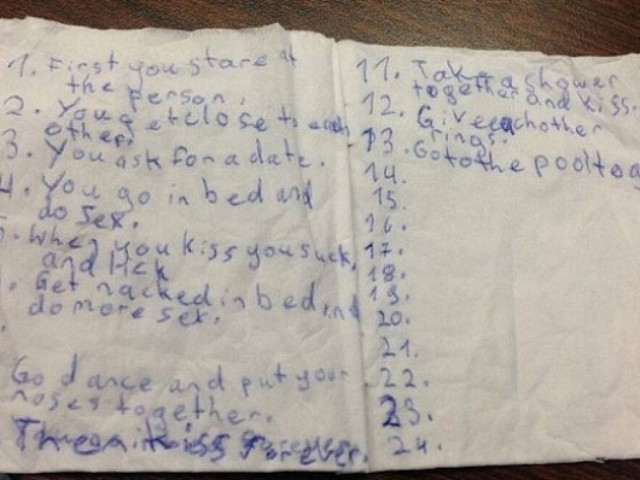 1. First you stare at
the person.
2. You get close to each
other.
3. You ask for a date.
4. You go in bed and
do sex.
. When you kiss you suck
and lick
. Get nacked in bed and
do more sex.
Go dance and put your
noses together.
kiss forever.
11. Take a shower
together and kiss
12. Give eachother
rings.
13. Go to the pool
14.
15.
16.
17.
18.
19.
20.
21.
22.
23.
24.